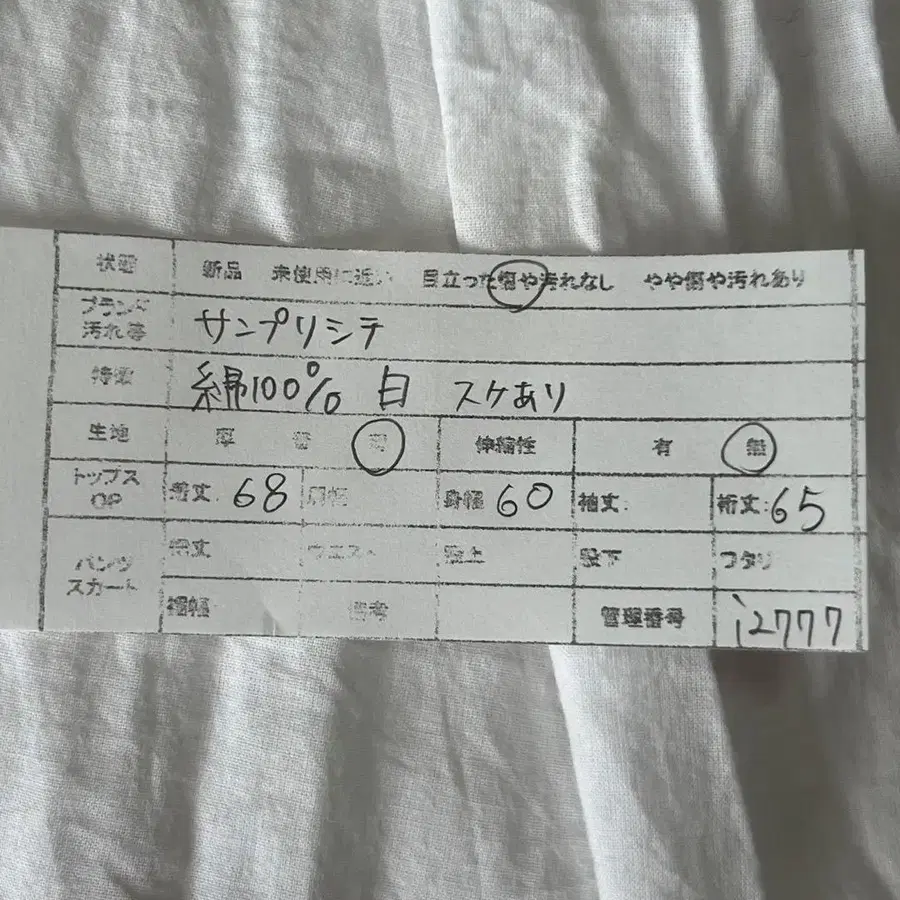 状態 新品 未使用に近い 目立った傷や汚れなし やや傷や汚れあり
ブランド
汚れ等 サンプリシテ
特徴 綿100% 白 スケあり
生地 厚 普 薄 伸縮性 有 無
トップス
OP 着丈: 68 肩幅 身幅 60 袖丈: 裄丈: 65
パンツ
スカート 総丈 ウエスト 股上 股下 ワタリ
裾幅 備考 管理番号 i2777